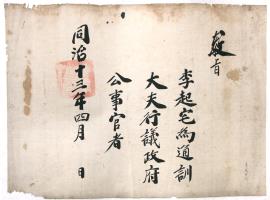 敎旨
李起宅爲通訓
大夫行議政府
公事官者
同治十三年四月　日